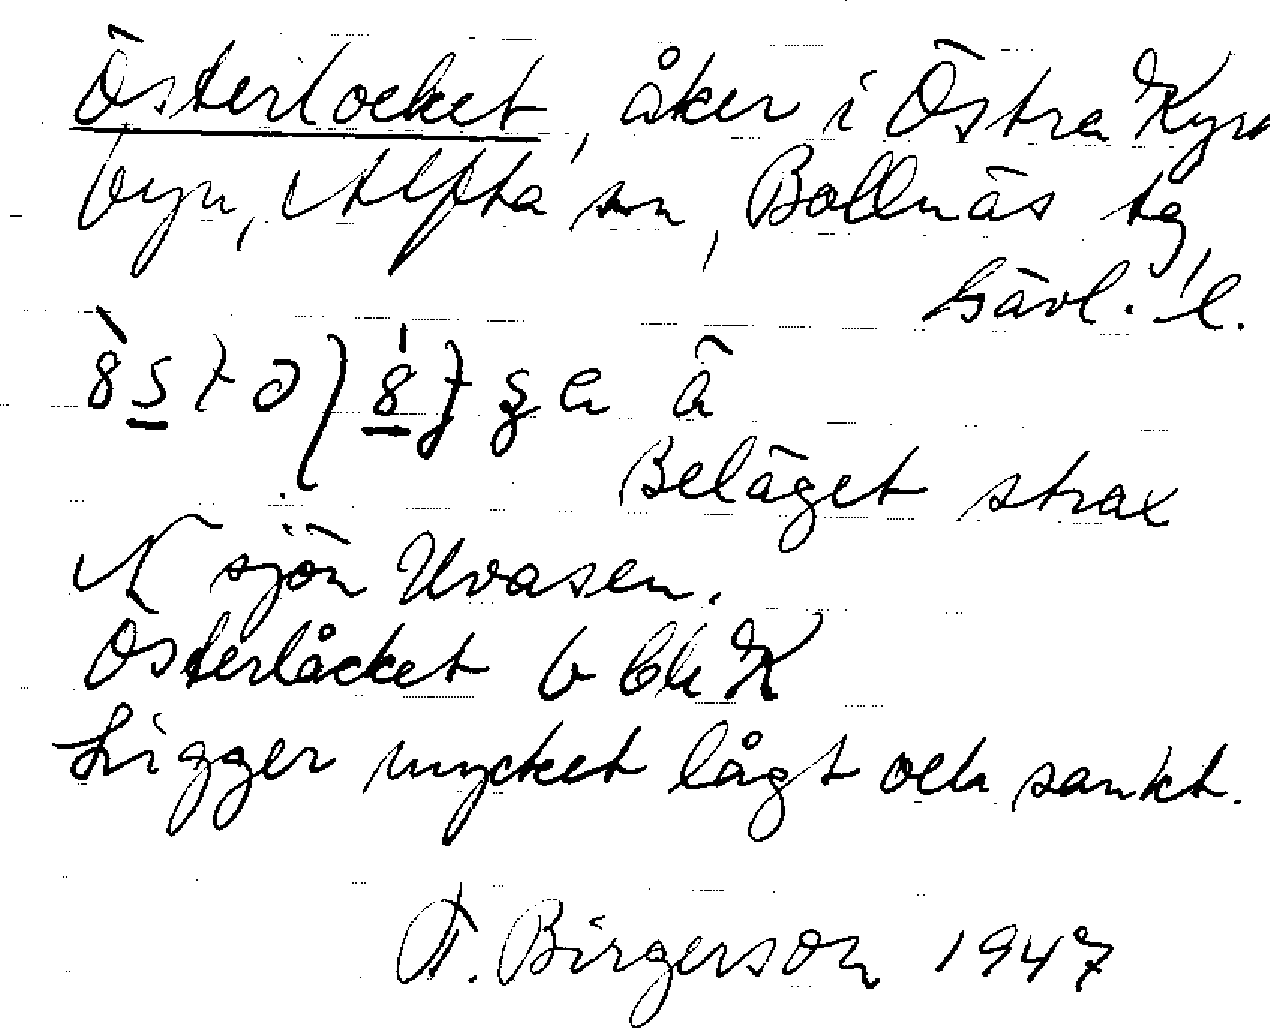 Österlocket, åker i Östra Kyrk
byn, Alfta sn, Bollnäs tg
Gävl. l.
å
Beläget strax
N sjön Uvasen.
Österlåcket
Ligger mycket lågt och sankt.
F. Birgerson 1947